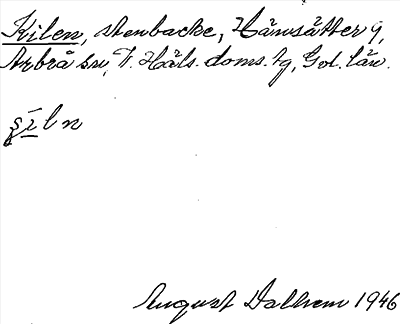 Kilen, stenbacke, Hämsätter g,
Arbrå sn, V. Häls. doms. tg, Gvl. län.
ṣīln
August Dalhem 1946